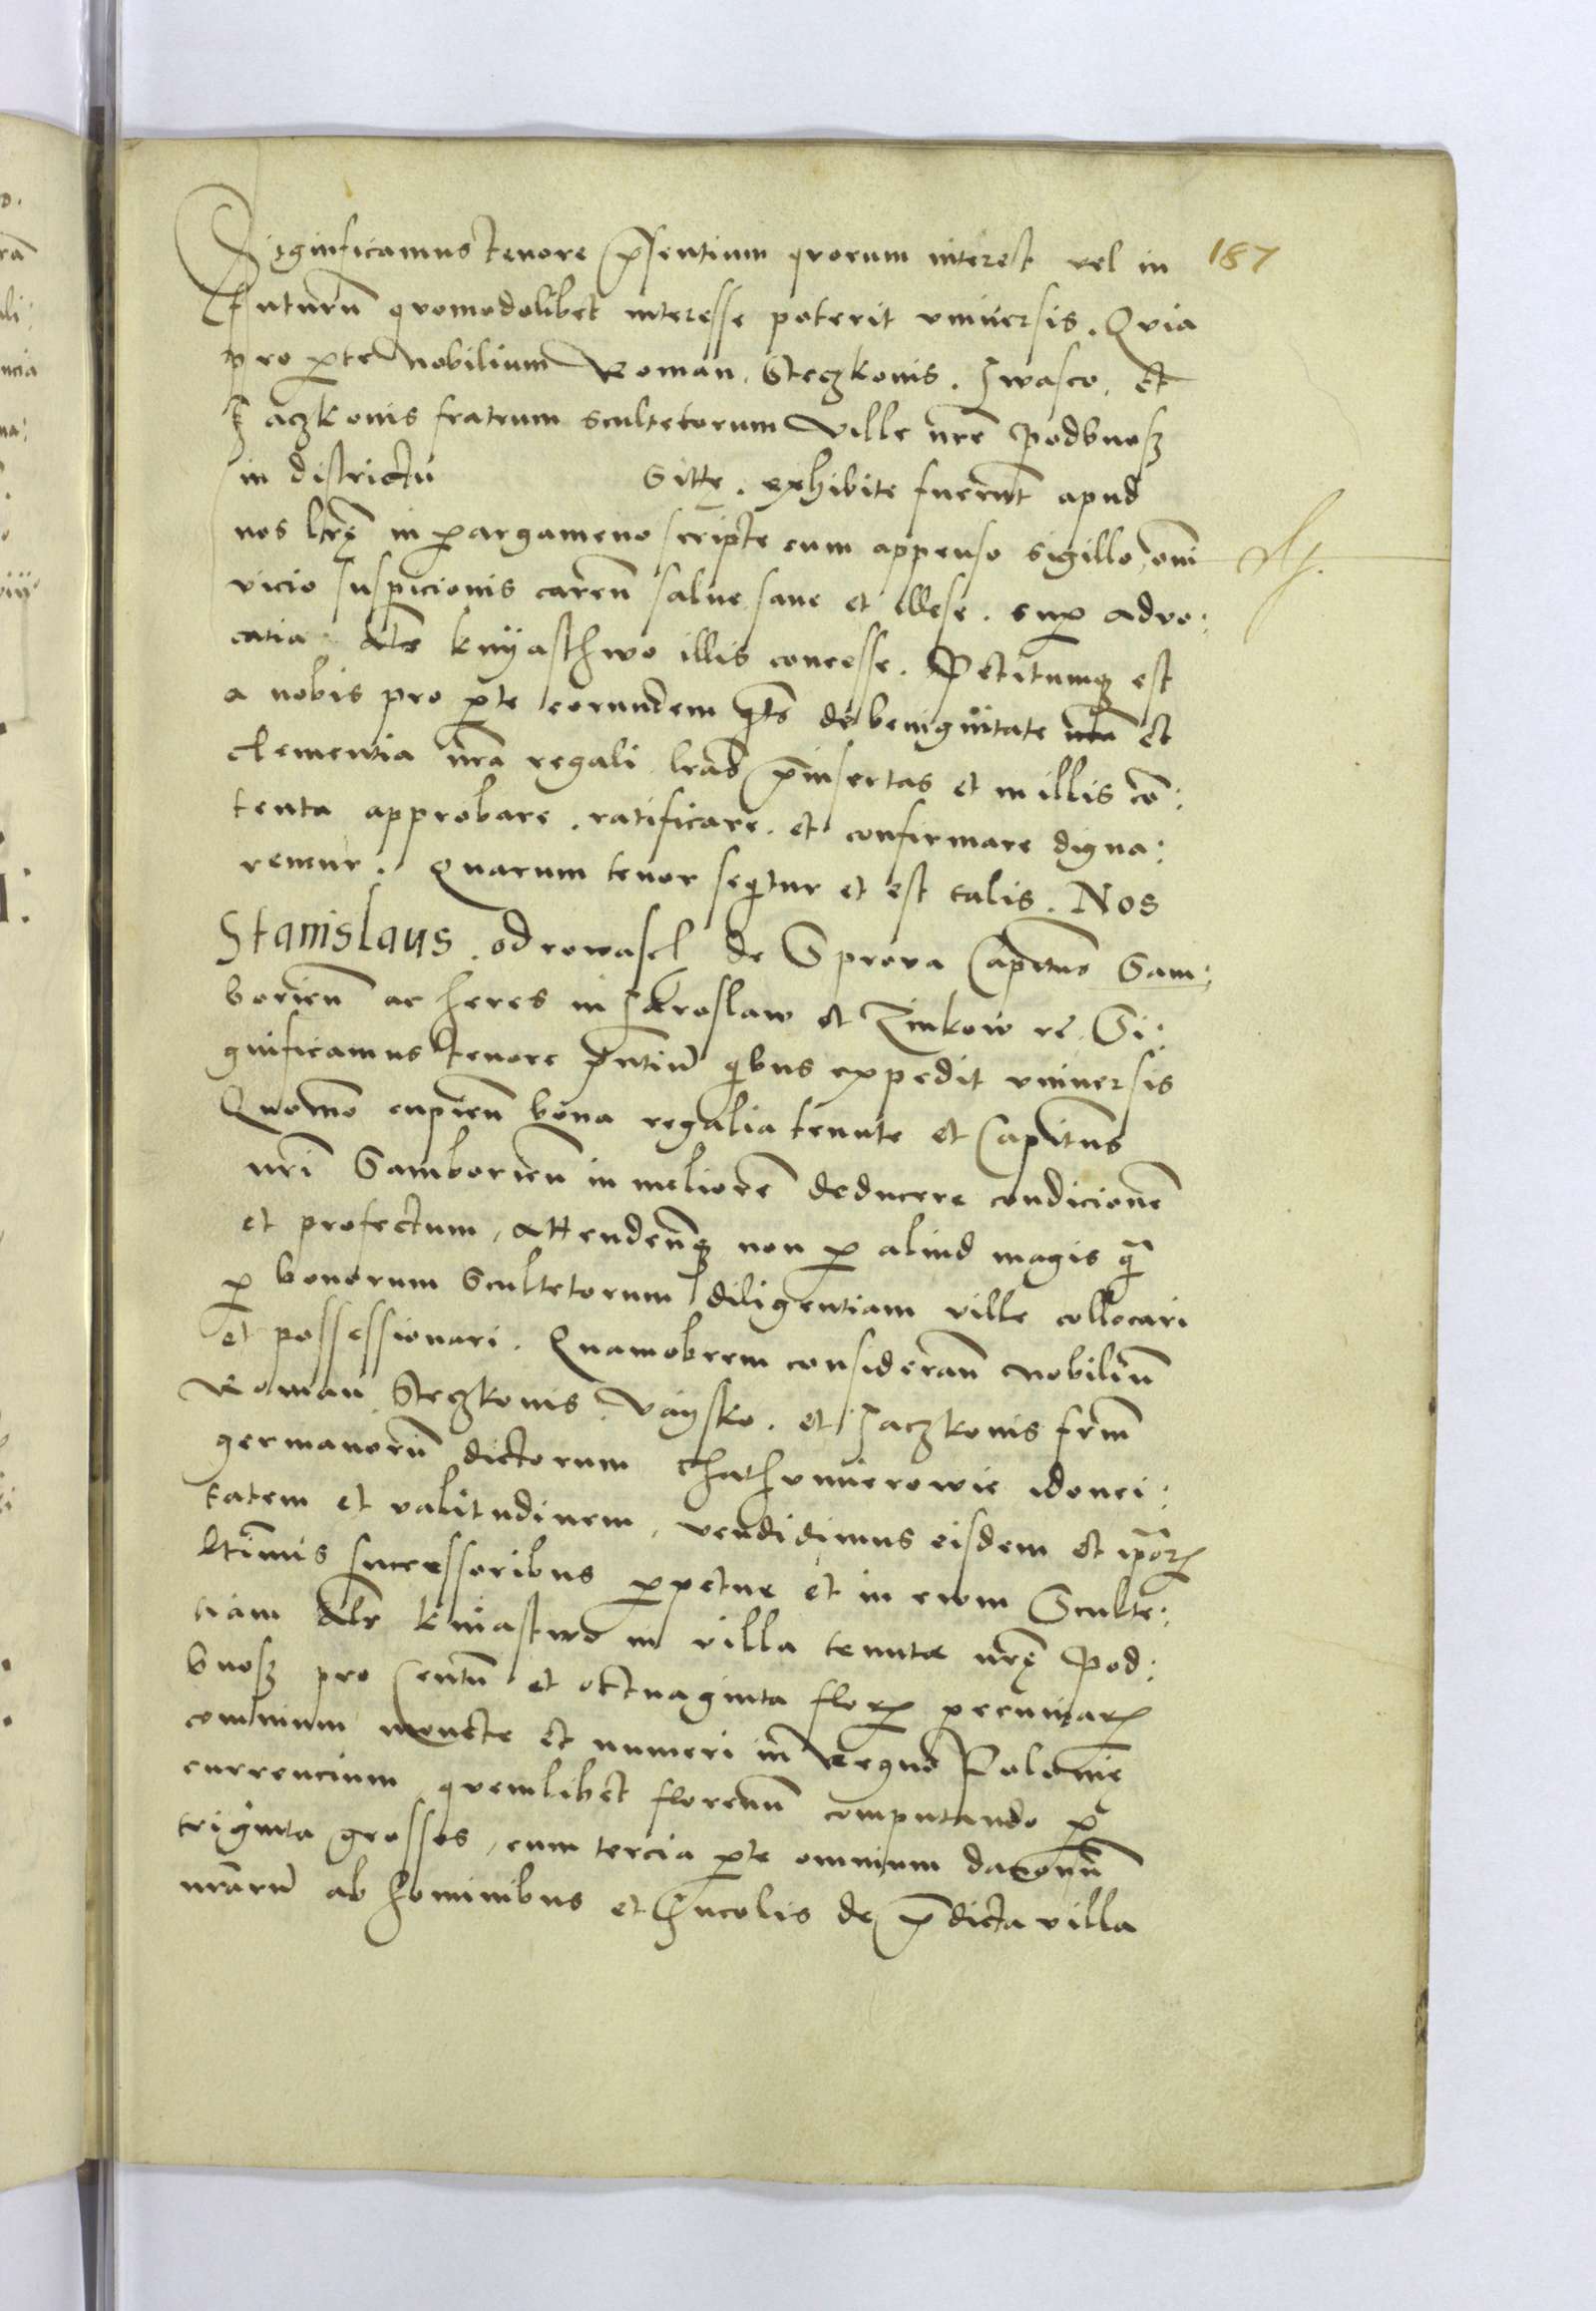 Significamus tenore p̄sentium qvorum interest vel in 187
futurū qvomodolibet interesse poterit vniuersis. Qvia
pro p̱te Nobilium Roman. Steczkonis. Jwasco. Et
Jaczkonis fratrum scultetorum Ville nr̄e Podbvosz
in districtu Sitte. exhibite fuerunt apud
nos lr̄ę in pargameno scripte cum appenso sigillo, om̄i
vicio suspicionis careñ salue sane et illese. sup̱ Advo:
catia. als knÿasthwo illis concesse. Petitumq̨ est
a nobis pro p̱te eorundem q̄ts de benignitate et
clementia nr̄a regali lr̄as p̄insertas et in illis cō:
tenta approbare. ratificare. et confirmare digna:
remur. Quarum tenor seqͥtur et est talis. Nos
Stanislaus. odrowasch de Sprova Capitn̄s Sam:
borieñ ac heres in Jaroslaw et Zinkow rc̄. Si:
gnificamus tenore p̄ntiū qͥbus expedit vniuersis
Quomō cupieñ bona regalia tenute et Capitn̄s
nr̄i Samborieñ in meliorē deducere condicionē
et profectum, Attendeñq̨ non p̱ aliud magis qͣ̄
p̱ bonorum Scultetorum diligentiam ville collocari
et possessionari. Quamobrem considerañ Nobiliū
Roman. Steczkonis. Vaysko. et Jaczkonis fr̄m
germanorū dictorum Chathvnierowie idonei:
tatem et valitudinem, vendidimus eisdem et ip̄oꝝ
ltīmis successoribus p̱petue et in ewm Sculte:
tiam als kniastwo in villa tenute nr̄ę Pod:
bvosz pro Centū et octuaginta floꝝ pecuniaꝝ
comunium monete et numeri in Regno Polonię
currencium qvemlibet florenū computando p̱
triginta grossos, cum tercia p̱te omnium dacionū
nr̄arū ab hominibus et Incolis de p̄dicta villa